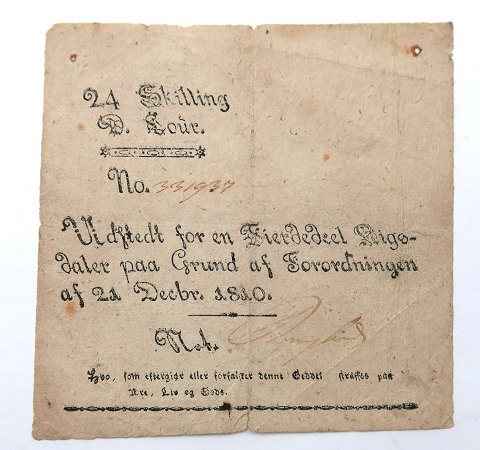 24 Skilling
D. Cour.
No. 331937
Udstedt for en Fierdedeel Rigs-
daler paa Grund af Forordningen
af 21 Decbr. 1810.
Not.
Hvo, som eftergiør eller forfalsker denne Seddel straffes paa
Ære, Liv og Gods.